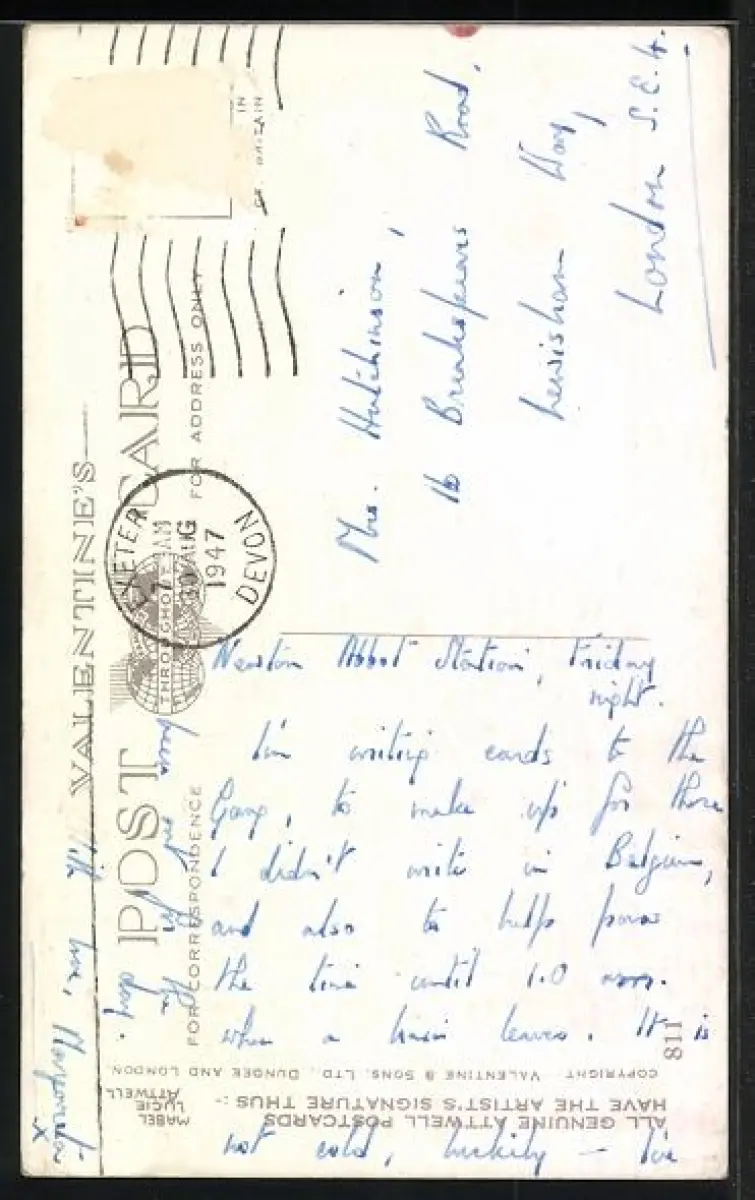 VALENTINE'S
POST CARD
FOR CORRESPONDENCE
FOR ADDRESS ONLY
EXETER
7 AM
30 AUG
1947
DEVON
Mrs. Hutchinson,
16 Breakspears Road,
Lewisham Way,
London S.E.4.
Newton Abbot Station, Friday
night.
I'm writing cards to the
Gang, to make up for those
I didn't write in Belgium,
and also to help pass
the time until 1.0 a.m.
when a train leaves. It is
not cold, luckily – I've
the day.
With love, Margaret
x
811
COPYRIGHT. VALENTINE & SONS, LTD., DUNDEE AND LONDON.
ALL GENUINE ATTWELL POSTCARDS
HAVE THE ARTIST'S SIGNATURE THUS :-
MABEL
LUCIE
ATTWELL